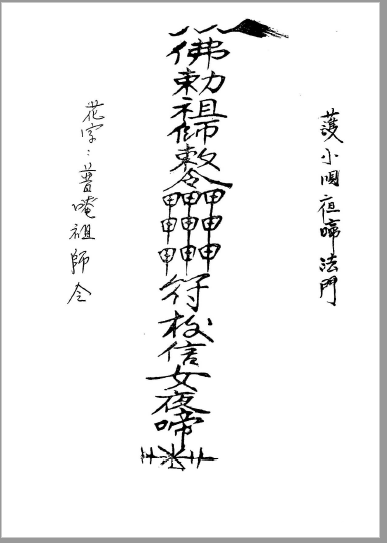 護小夜啼法門
佛勅祖師敕令
甲甲甲
甲甲甲
甲甲甲
符信女夜啼
花字：普唵祖師令